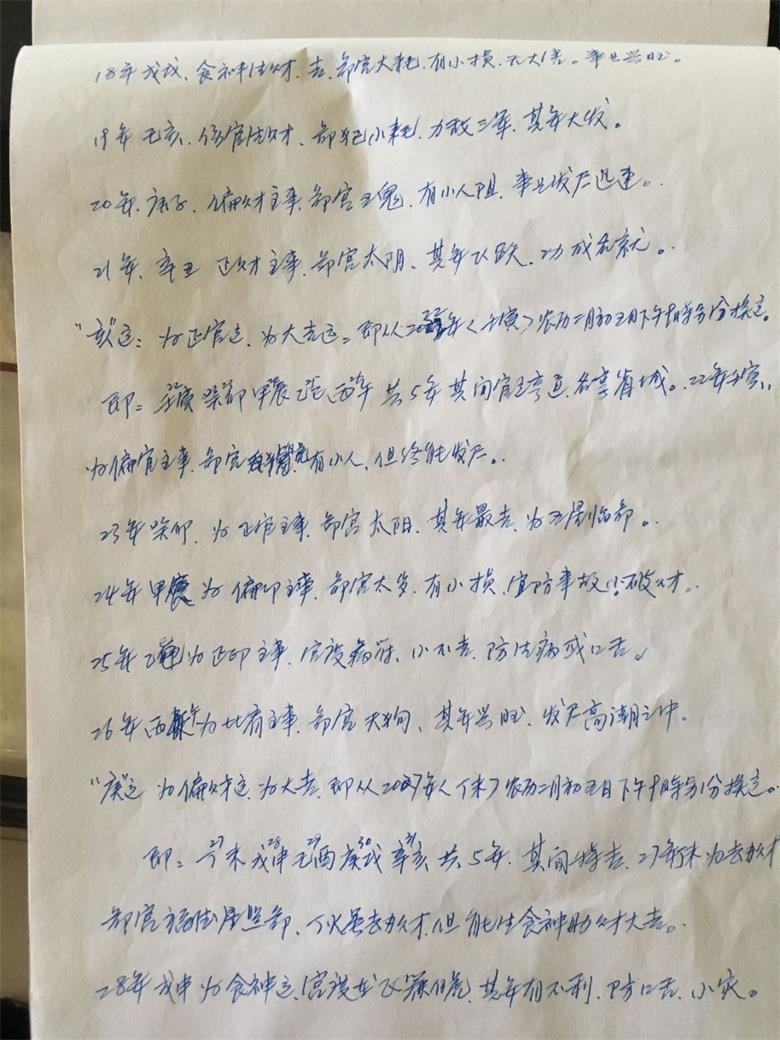 18年戊戌、食神生财、吉、部宫大耗、有小损、无大害。事业兴旺。
19年己亥、伤官生财、部犯小耗、力敌三军、其年大发。
20年、庚子、偏财主事、部宫五鬼、有小人阻、事业发展迅速。
21年、辛丑 正财主事、部宫太阴、其年飞跃、功成名就。
"亥"运：为正官运、为大吉运。即从2022年〈壬寅〉农历二月初五日下午 时 分换运。
即：壬寅 癸卯 甲辰 乙巳 丙午 共5年 其间官至亨通、名享省城。22年壬寅、
为偏官主事、部宫 有小人、但终能发展。
23年癸卯、为正官主事、部宫太阳、其年最吉、为 部。
24年甲辰为偏印主事、部宫太岁、有小损、宜防事故小破财。
25年乙巳为正印主事、宫度病符、小不吉、防生病或口舌。
26年丙午为比肩主事、部宫天狗、其年兴旺、发展高潮之中。
"庚"运 为偏财运、为大吉、即从2027年〈丁未〉农历二月初五日下午 时 分换运。
即：27丁未 28戊申 29己酉 30庚戌 31辛亥 共5年、其间特吉、27年丁未为去劫才
部宫福德星照部、丁火虽去劫才、但能生食神助财大吉。
28年戊申为食神运、宫度 白虎、其年有不利、防口舌、小灾。